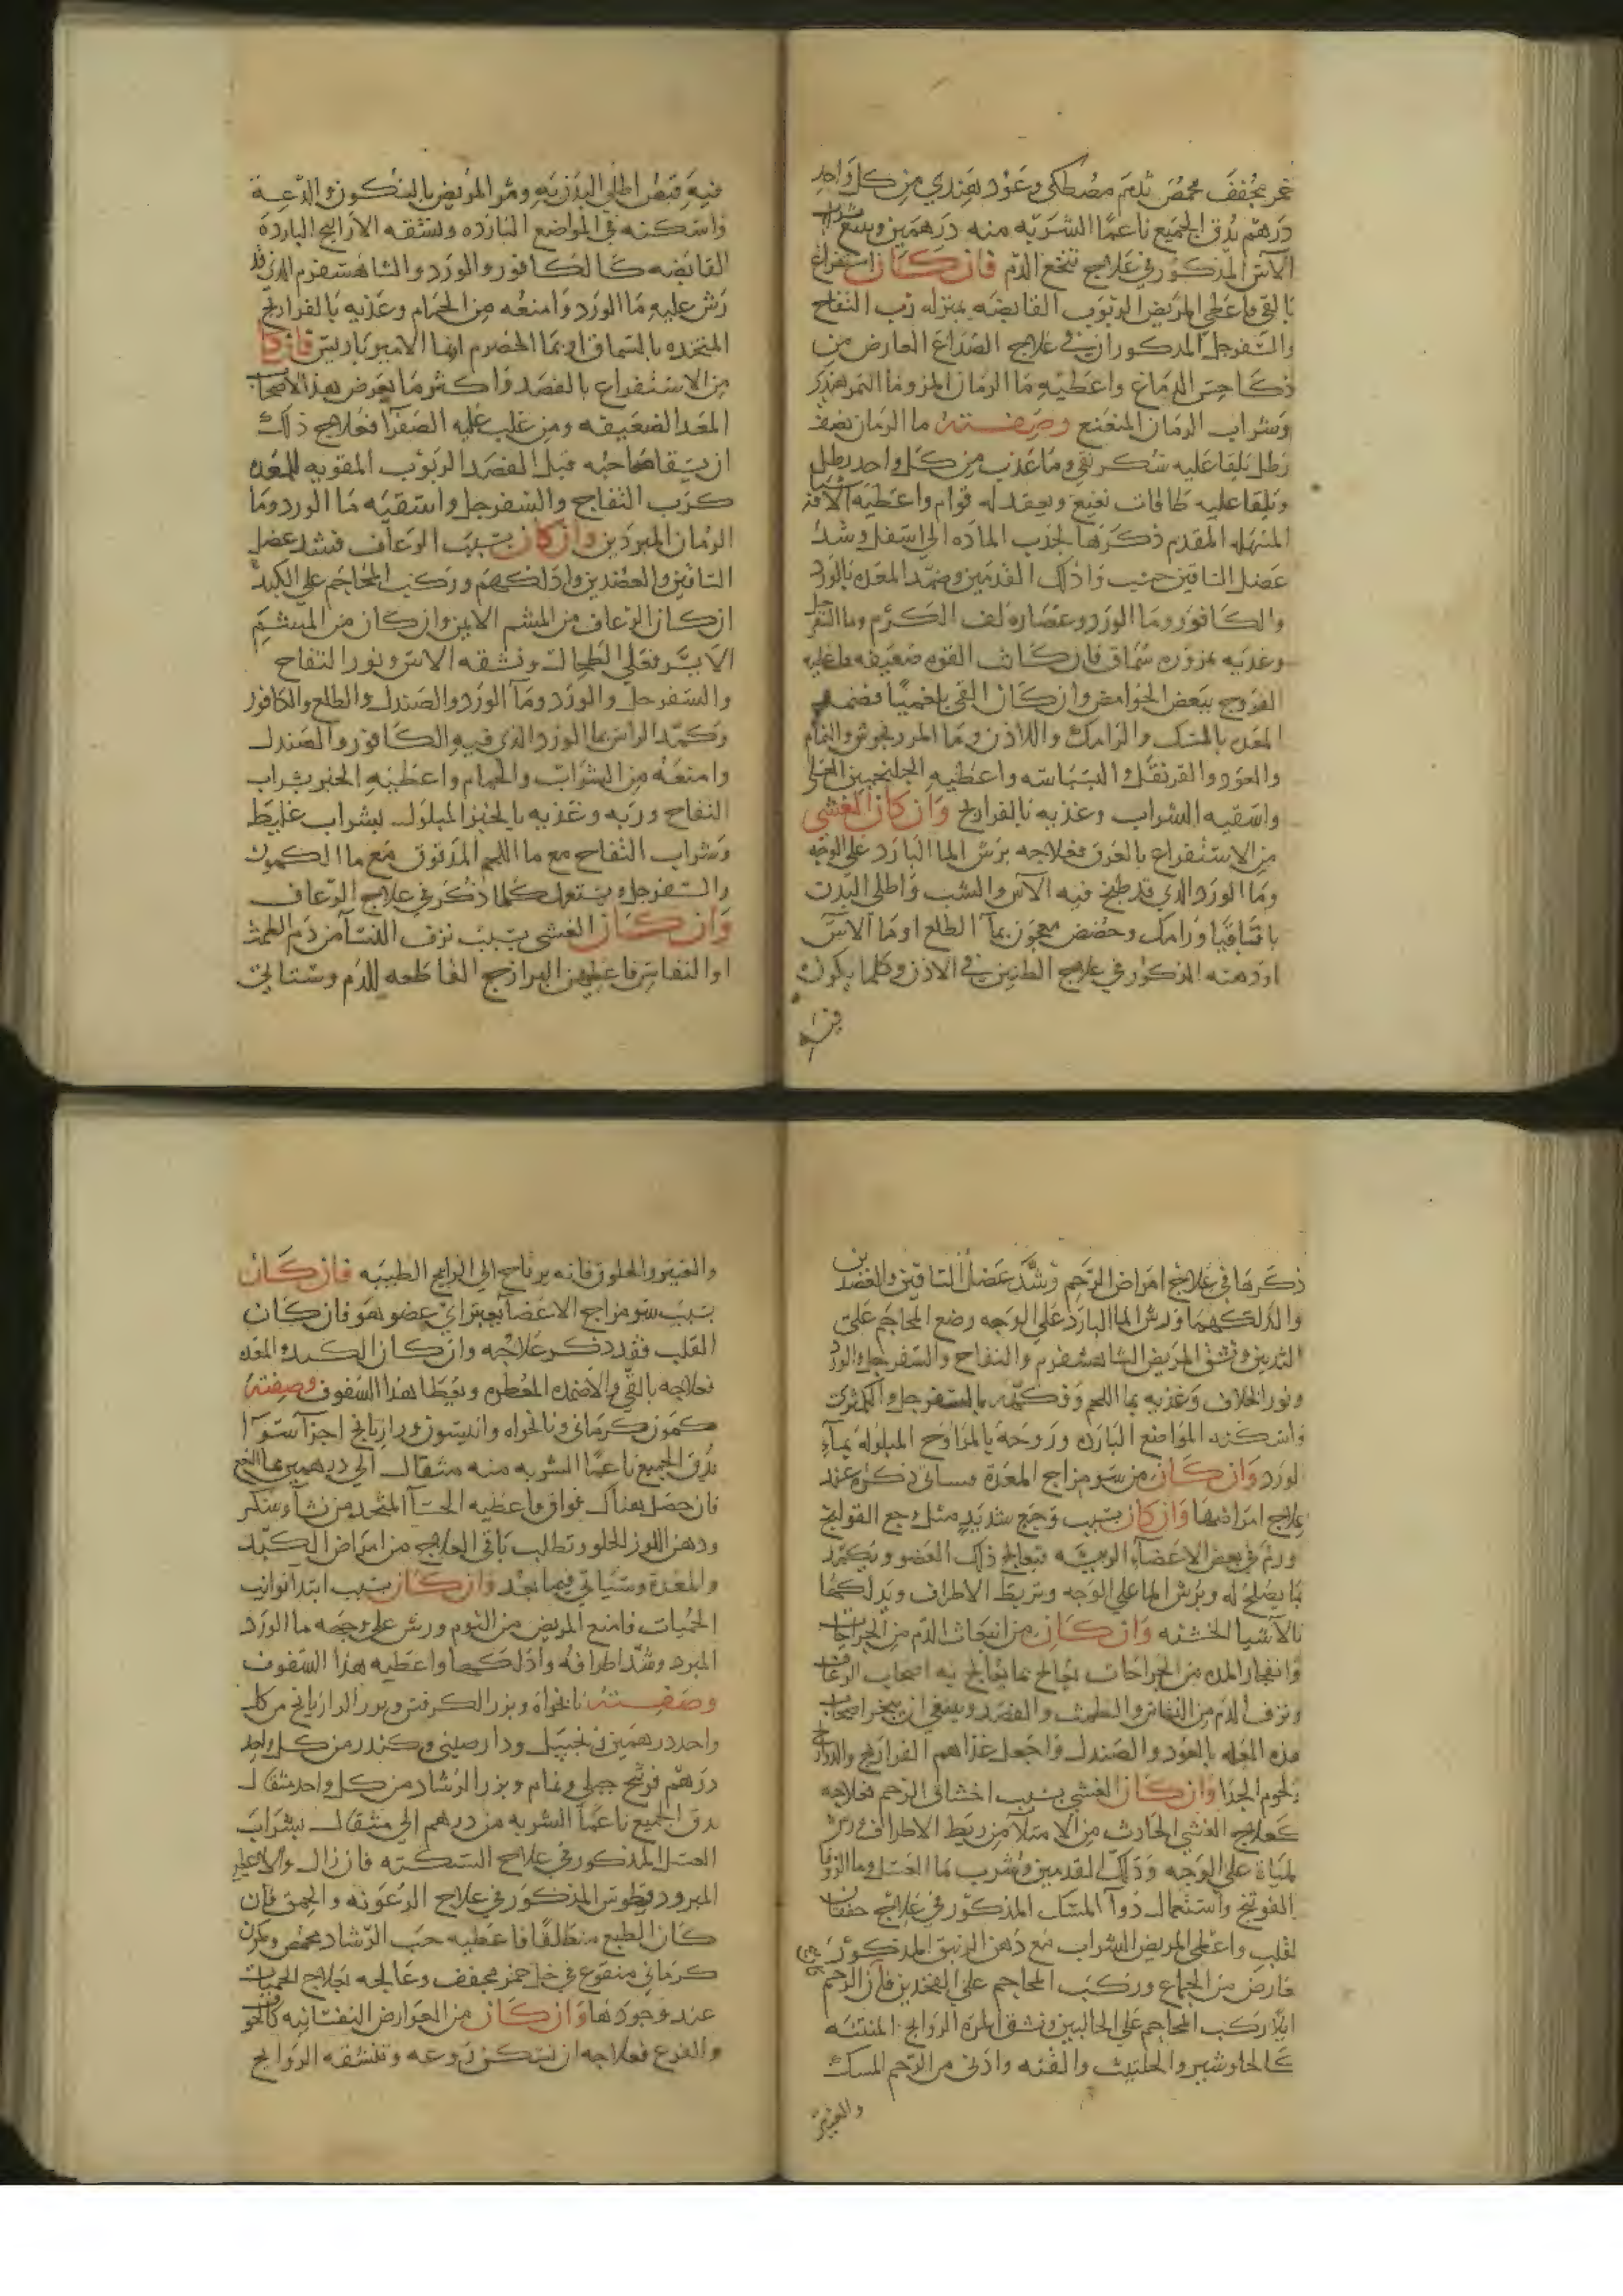 خمر مجفف محمص ثلاثة مصطكى وعود هندي من كل واحد
درهم يدق الجميع ناعمًا الشربه منه درهمين ويتبع بشراب
الآس المذكور في علاج تنخع الدم فان كان استفراغ
بالقي فاعطي المريض الربوب القابضه بمنزله رب التفاح
والسفرجل المذكوران في علاج الصداع العارض من
ذكا حس الدماغ واعطيه ما الرمان المز وما التمر هندي
وشراب الرمان المنعنع وصفته ما الرمان نصف
رطل يلقا عليه سكر نقي وما عذب من كل واحد رطل
ويلقا عليه طاقات نعنع ويعقد له قوام واعطيه الاشيا
المسهله المقدم ذكرها لجذب الماده الى اسفل وشد
عضل الساقين حينئذ وادلك القدمين وضمد المعده بالورد
والكافور وما الورد وعصاره لف الكرم وما السفرجل
وغذيه بمزوره سماق فان كانت القوه ضعيفه فاعطيه
الفروج ببعض الحوامض وان كان القي بلغميًا فضمد
المعده بالمسك والرامك واللاذن وما المردنجوش والنمام
والعود والقرنفل والبسباسه واعطيه الجلنجبين العسلي
واسقيه الشراب وغذيه بالفراريج وان كان الغشي
من الاستفراغ بالعرق فعلاجه برش الما البارد على الوجه
وما الورد الذي قد طبخ فيه الآس والشب واطلي البدن
باقاقيا ورامك وحضض معجون بمآ الطلع او ما الآس
او دهنه المذكور في علاج الطنين في الاذن وكلما يكون
فيه قبض اطلي البدن به ومر المريض بالسكون والدعه
واسكنه في المواضع البارده ونشقه الاراييح البارده
القابضه كالكافور والورد والشاهسفرم الذي قد
رش عليه ما الورد وامنعه من الحمام وغذيه بالفراريج
المتخذه بالسماق او بما الحصرم او بما الامبرباريس فان كان
من الاستفراغ بالفصد واكثر ما يعرض هذا لاصحاب
المعد الضعيفه ومن غلب عليه الصفرا فعلاج ذلك
ان يسقا صاحبه قبل الفصد الربوب المقويه للمعده
كرب التفاح والسفرجل واسقيه ما الورد وما
الرمان المبردين وان كان بسبب الرعاف فشد عضل
الساقين والعضدين وادلكهم وركب المحاجم على الكبد
ان كان الرعاف من المشم الايمن وان كان من المنشم
الايسر فعلى الطحال ونشقه الآس ونور التفاح
والسفرجل والورد ومآ الورد والصندل والطلع والكافور
وكمد الراس بما الورد الذي فيه الكافور والصندل
وامنعه من الشراب والحمام واعطيه الخبز بشراب
التفاح وربه وغذيه بالخبز المبلول بشراب غليظ
وشراب التفاح مع ما اللحم المدقوق مع ما الكمون
والسفرجل ويستعمل كلما ذكر في علاج الرعاف
وان كان الغشي بسبب نزف النسآ من دم الطمث
او النفاس فاعطيهن البرازج القاطعه للدم وستاتي
ذكرها في علاج امراض الرحم وشد عضل الساقين والعضدين
والدلكهما ورش الما البارد على الوجه وضع المحاجم على
الثديين ونشق المريض الشاهسفرم والتفاح والسفرجل والورد
ونور الخلاف وغذيه بما اللحم وفكهه بالسفرجل والكمثرى
واسكنه المواضع البارده وروحه بالمراوح المبلوله بمآء
لورد وان كان من سو مزاج المعدة فساتي ذكره عند
علاج امراضها وان كان بسبب وجع شديد مثل وجع القولنج
ورم في بعض الاعضاء الرييسه فتعالج ذلك العضو وبكمد
بما يصلح له ويرش الما على الوجه وتربط الاطراف ويدلكها
بالاشيا الخشنه وان كان من انبعاث الدم من الجراحات
وانفجار المده من الخراجات تعالج بما يعالج به اصحاب الرعاف
ونزف الدم من النفاس والطمث والفصد وينبغي ان يبخر اصحاب
هذه العله بالعود والصندل واجعل غذاهم الفراريج والدراج
ولحوم الجدا وان كان الغشي بسبب اختناق الرحم فعلاجه
كعلاج الغشي الحادث من الامتلآ من ربط الاطراف ورش
لمياة على الوجه ودلك القدمين وشرب ما العسل وما الزوفا
الفوتنج واستعمال دوآ المسك المذكور في علاج خفقان
لقلب واعطي المريض الشراب مع دهن الزنبق المذكور
فارض من الجماع وركب المحاجم على الفخدين فان الرحم
ايلا ركب المحاجم على الحالبين ونشق المره الروايح المنتنه
كالجاوشير والحلتيت والقنه وادني من الرحم المسك
والعنبر
والعنبر والخلوق فانه يرتاح الي الرايح الطيبه فان كان
بسبب سو مزاج الاعضآ فميز اي عضو هو فان كان
القلب فقد ذكر علاجه وان كان الكبد والمعده
فعلاجه بالقي والاضمده المعطره ويعطا هذا السفوف وصفته
كمون كرماني ونانخواه وانيسون ورازيانج اجزآ سوآ
يدق الجميع ناعمًا الشربه منه مثقال الي درهمين بما
فان حصل هناك فواق فاعطيه الحسآ المتخذ من نشآ وسكر
ودهن اللوز الحلو وتطلب باقي العلاج من امراض الكبد
والمعدة وستاتي فيما بعد وان كان بسبب ابتدا نوايب
الحميات فامنع المريض من النوم ورش على وجهه ما الورد
المبرد وشد اطرافه وادلكها واعطيه هذا السفوف
وصفته نانخواه وبزر الكرفس وبزر الرازيانج من كل
واحد درهمين زنجبيل ودارصيني وكندر من كل واحد
درهم فوتنج جبلي ونمام وبزر الرشاد من كل واحد مثقال
يدق الجميع ناعمًا الشربه من درهم الي مثقال بشراب
العسل المذكور في علاج السكته فان زال والا فاعطيه
المبرود يطوس المذكور في علاج الرعونه والحمق فان
كان الطبع منطلقًا فاعطيه حب الرشاد محمص وكمون
كرماني منقوع في خل خمر مجفف وعالجه بعلاج الحميات
عند وجودها وان كان من العوارض النفسانيه كالخوف
والفزع فعلاجه ان تسكن روعه وتنشقه الروايح